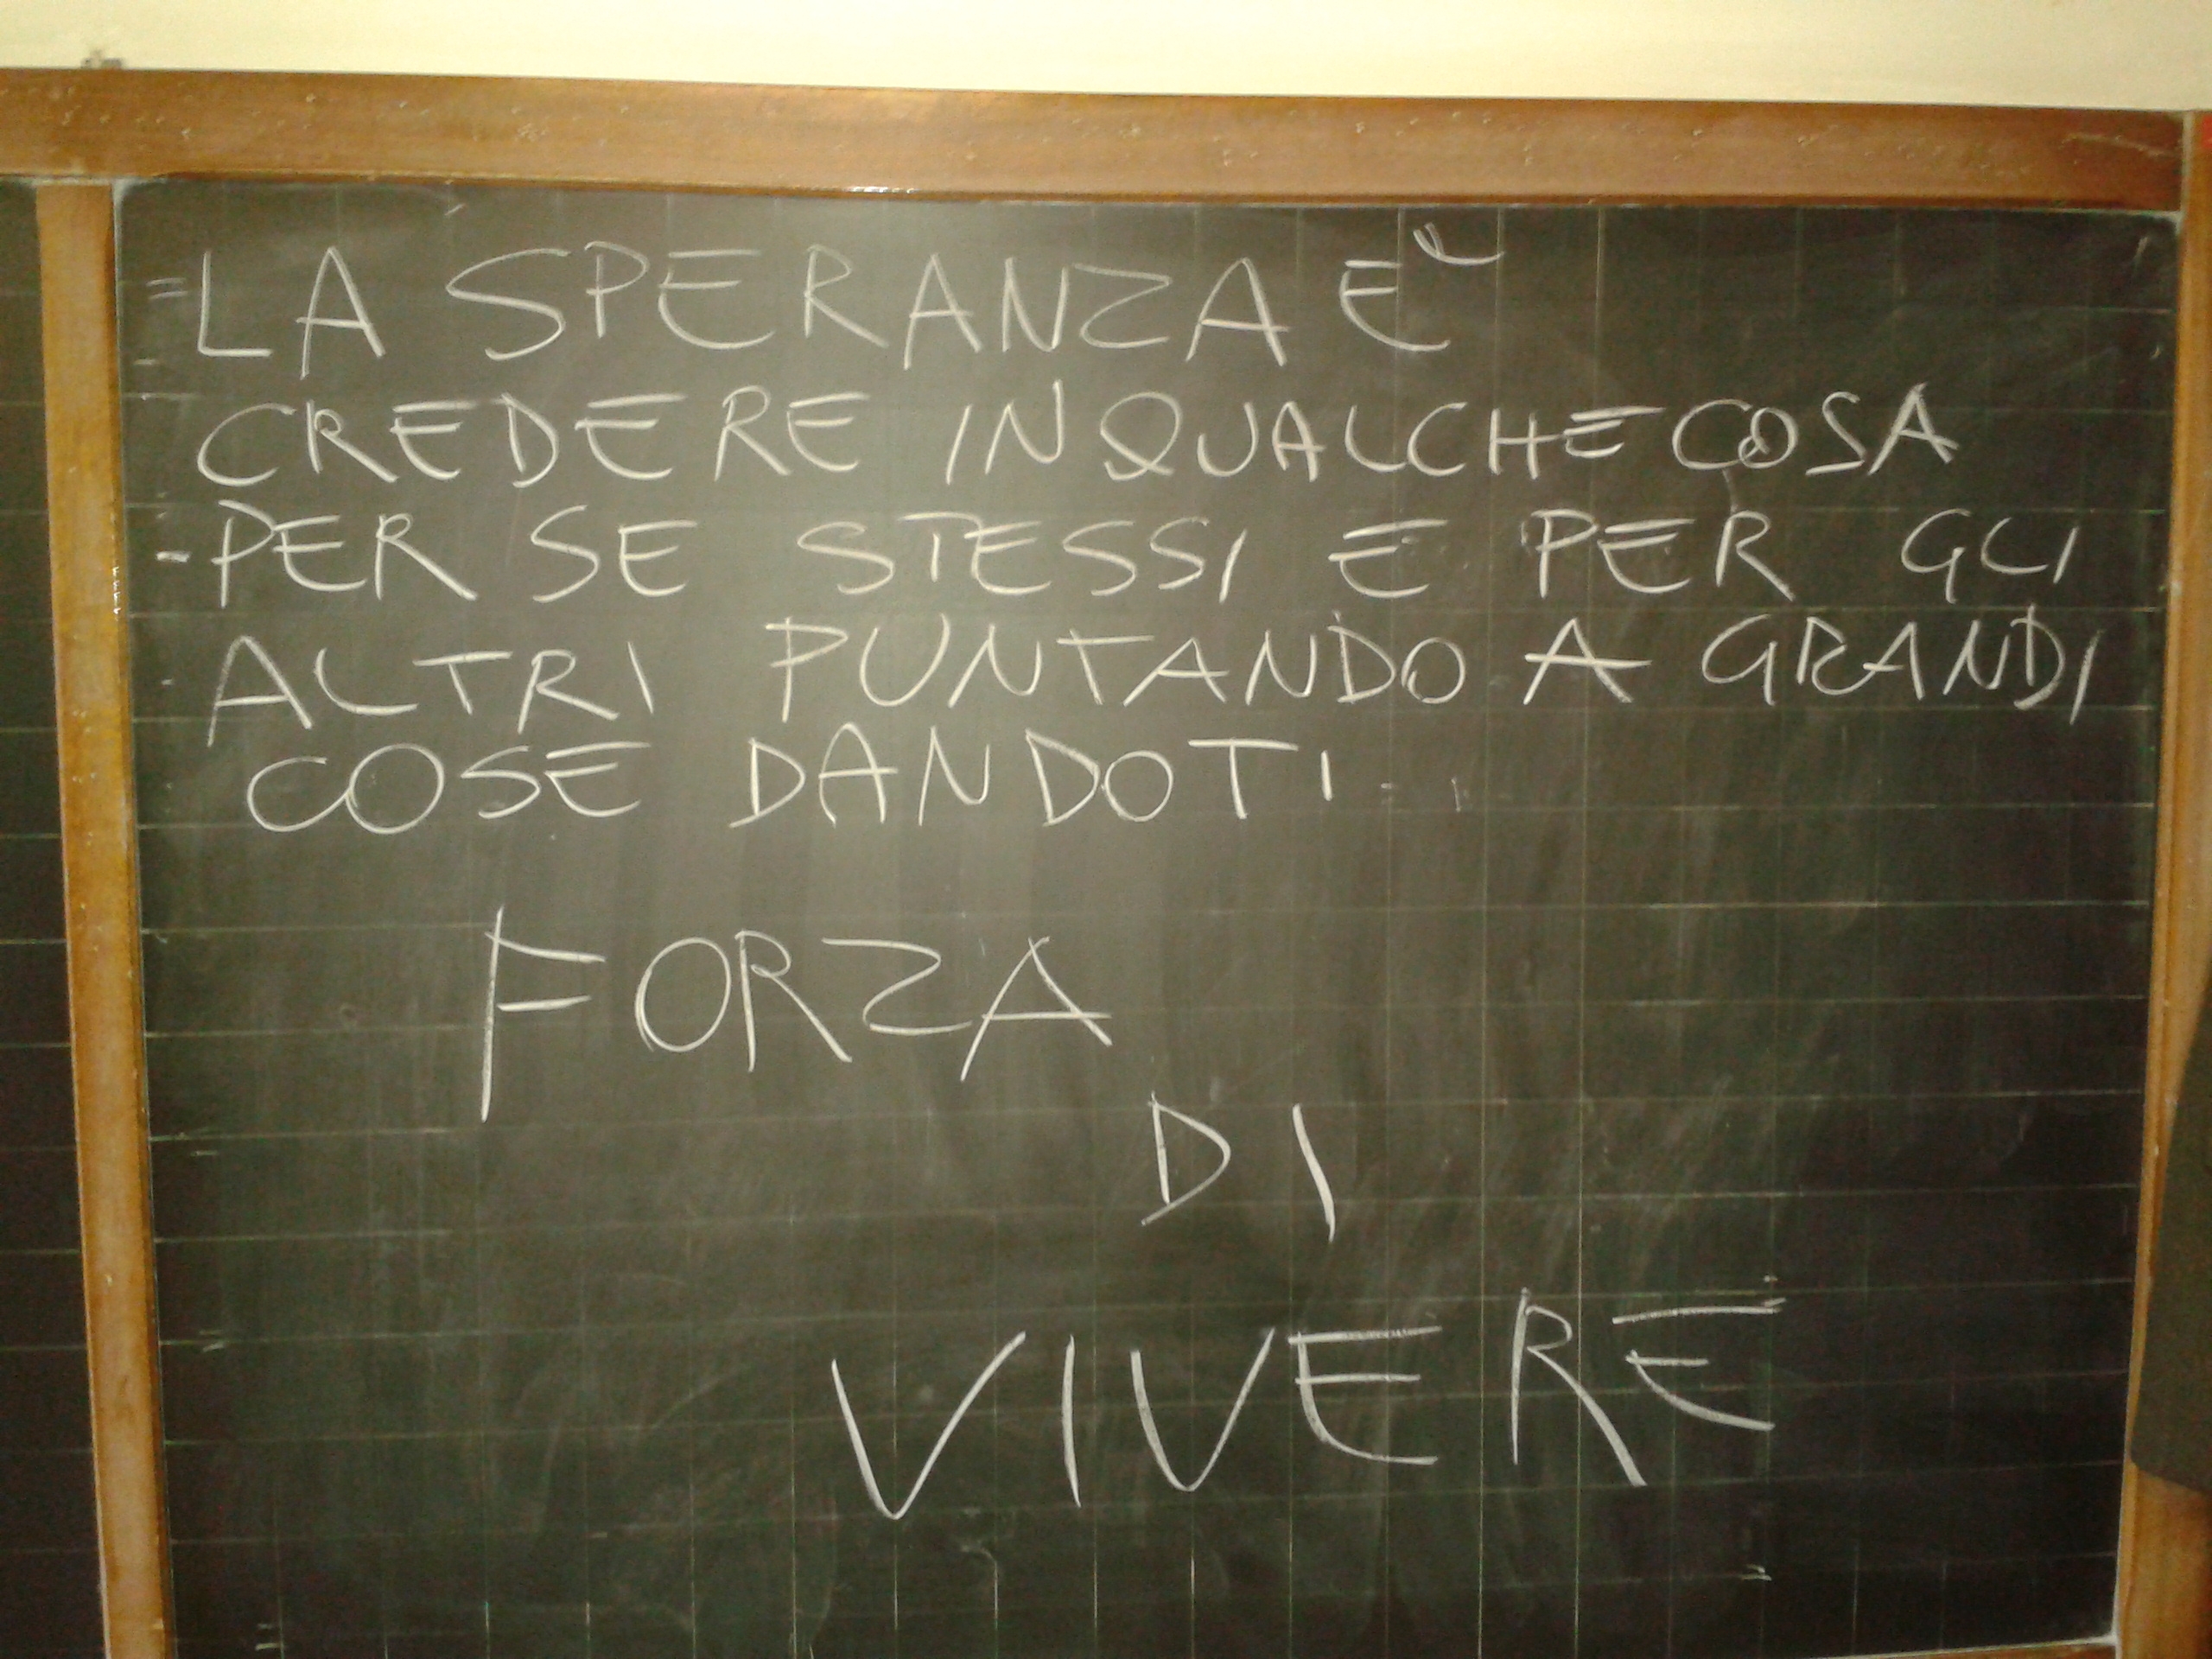 LA SPERANZA È
CREDERE IN QUALCHECOSA
PER SE STESSI E PER GLI
ALTRI PUNTANDO A GRANDI
COSE DANDOTI
FORZA
DI
VIVERE